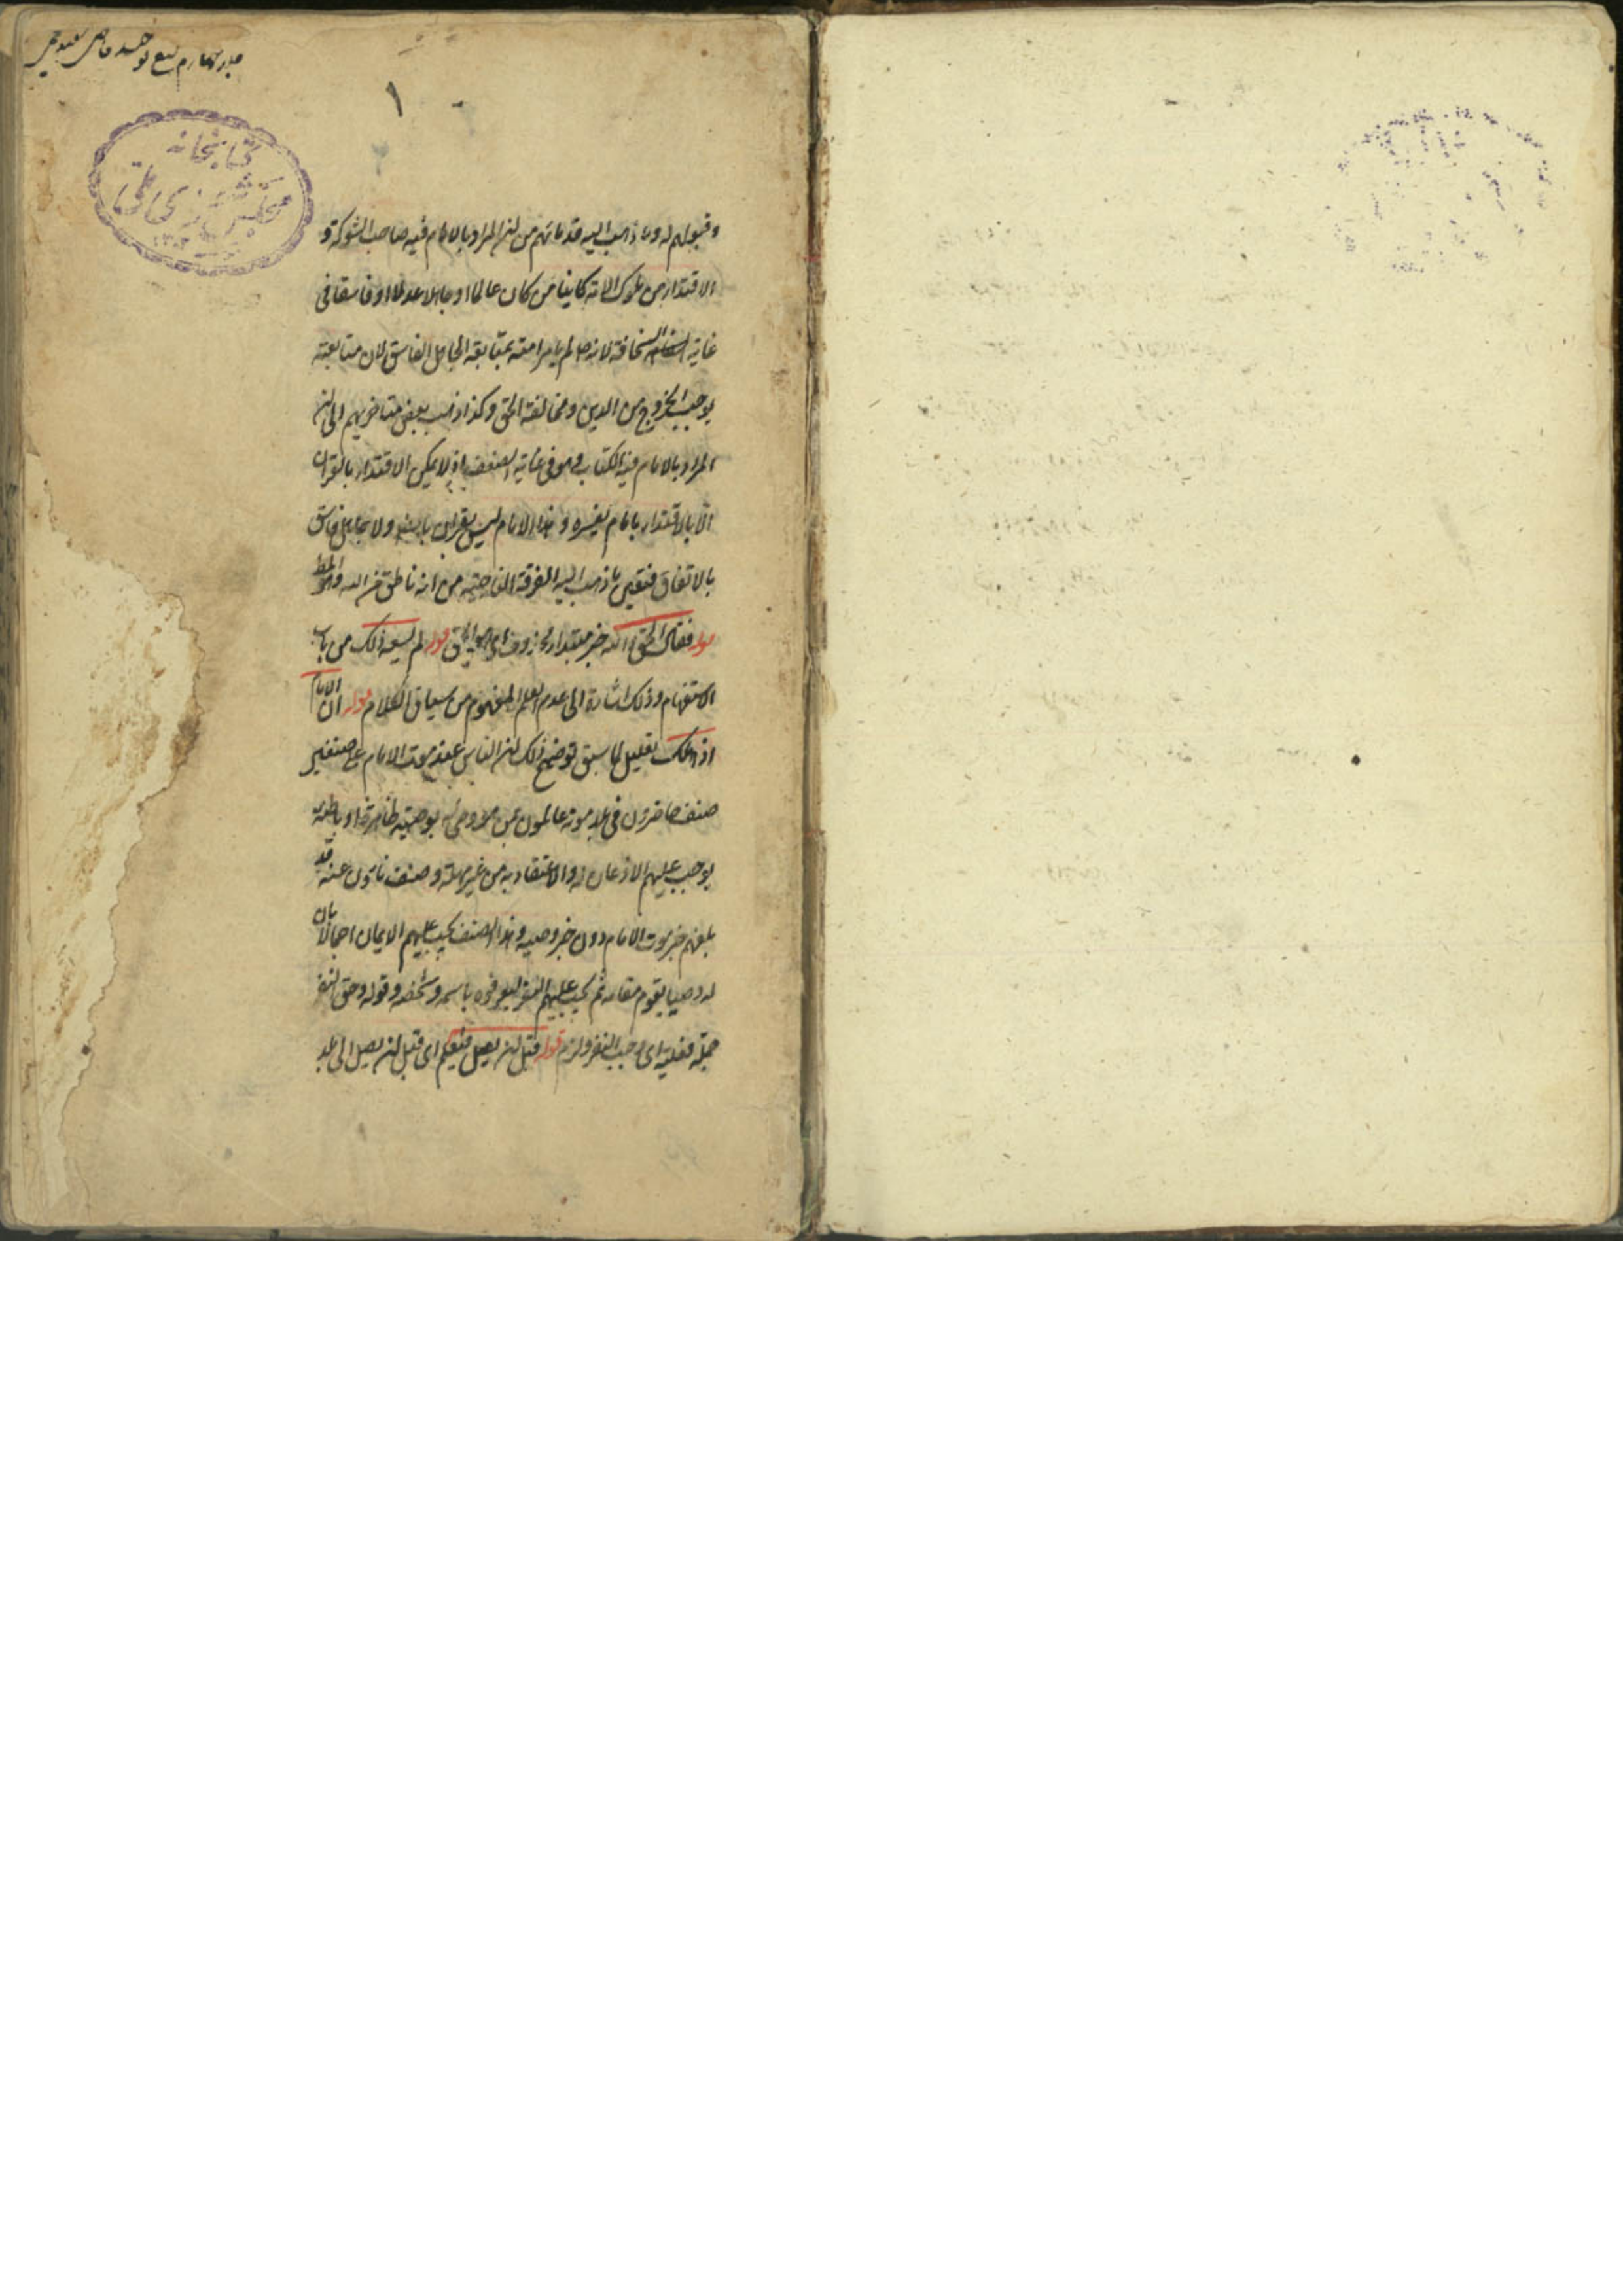 ۱
كتابخانه
مجلس شورای ملی
وقبولهم له وما ذهب اليه قدماؤهم من ان المراد بالامام فيه صاحب الشوكة و
الاقتدار من ملوك الامة كاينا من كان عالما او جاهلا عدلا او فاسقا فى
غاية السخافة لانه صلم لم يامر امته بمتابعة الجاهل الفاسق لان متابعته
يوجب الخروج من الدين ومخالفة الحق وكذا ذهب بعض متاخريهم الى ان
المراد بالامام فيه الكتاب وهو فى غاية الضعف اذ لا يمكن الاقتداء بالقران
الا بالاقتداء بامام يفسره وهذا الامام ليس بقران ولا بجاهل فاسق
بالاتفاق فتعين ما ذهب اليه الفرقة الناجية من انه ناطق من الله وهو المط
قوله فقال الحق والله خبر مبتداء محذوف اى هو الحق قوله لم يسعه ذلك من باب
الاستفهام وذلك اشارة الى عدم العلم المفهوم من سياق الكلام قوله ان الامام
اذا هلك تعليل لما سبق توضيح ذلك ان الناس عند موت الامام على صنفين
صنف حاضرون فى بلد موته عالمون بمن هو وصى له بوصيته ظاهرة او باطنة
يوجب عليهم الاذعان له والاعتقاد به من غير مهلة وصنف ناؤن عنه قد
بلغهم خبر موت الامام دون خبر وصيه وهذا الصنف يجب عليهم الايمان اجمالا بان
له وصيا يقوم مقامه ثم يجب عليهم النفر ليعرفوه باسمه وشخصه وقوله وحق النفر
جملة فعلية اى وجب النفر ولزم قوله قبل ان يصل فيعلم اى قبل ان يصل الى بلد